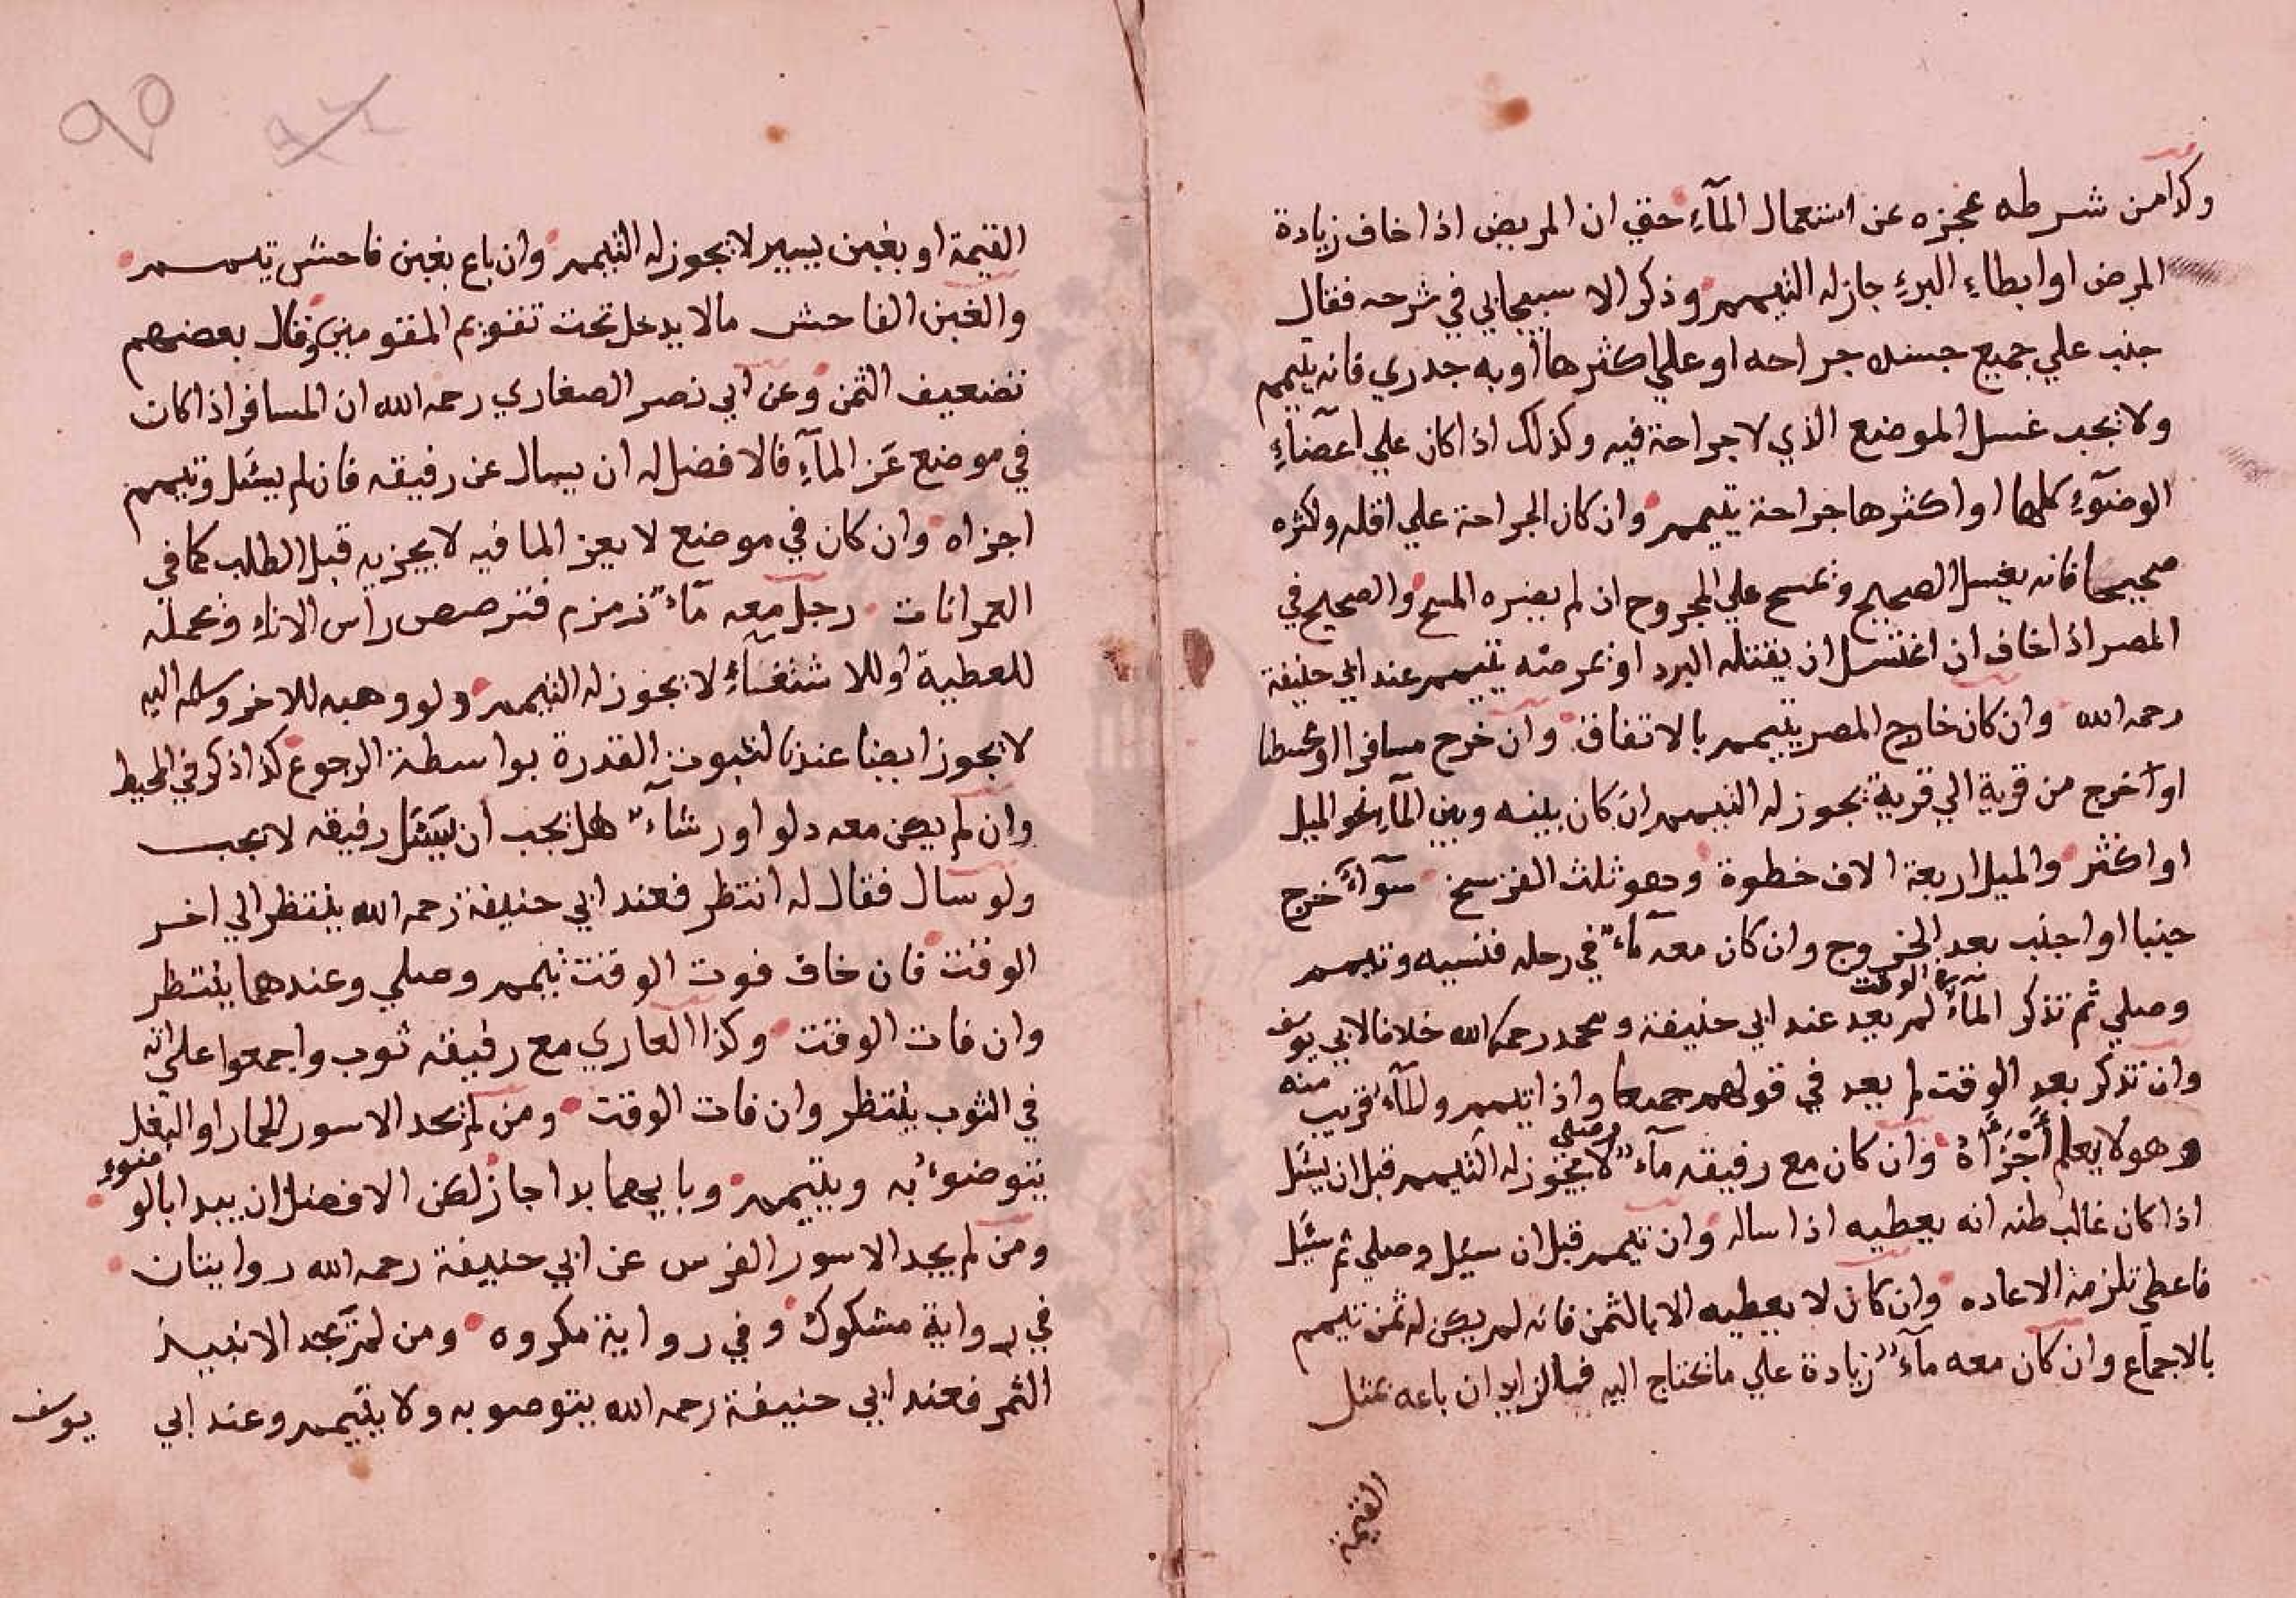 وكذا من شرطه عجزه عن استعمال المآء حتي ان المريض اذا خاف زيادة
المرض او ابطاء البرء جاز له التيمم وذكر الاسبيجابي في شرحه فقال
جنب علي جميع جسده جراحه او علي اكثرها او به جدري فانه يتيمم
ولا يجب غسل الموضع الذي لا جراحة فيه وكذلك اذا كان علي اعضآء
الوضوء كلها او اكثرها جراحة يتيمم وان كان الجراحة علي اقله واكثره
صحيحا فانه يغسل الصحيح ويمسح علي المجروح ان لم يضره المسح والصحيح في
المصر اذا خاف ان اغتسل ان يقتله البرد او يمرضه يتيمم عند ابي حنيفة
رحمه الله وان كان خارج المصر يتيمم بالاتفاق وان خرج مسافرا او محتطبا
او اخرج من قرية الي قرية يجوز له التيمم ان كان بينه وبين المآء نحو الميل
او اكثر والميل اربعة الاف خطوة وهو ثلث الفرسخ سوآء خرج
جنبا او اجنب بعد الخروج وان كان معه مآء في رحله فنسيه وتيمم
وصلي ثم تذكر المآء في الوقت لم يعد عند ابي حنيفة ومحمد رحمهما الله خلافا لابي يوسف
وان تذكر بعد الوقت لم يعد في قولهم جميعا واذا تيمم والمآء قريب منه
وهو لا يعلم أجزأه وان كان مع رفيقه مآء لا يجوز له التيمم وصلي قبل ان يسئل
اذا كان غالب ظنه انه يعطيه اذا ساله وان تيمم قبل ان سيئل وصلي ثم سئل
فاعطي تلزمه الاعاده وان كان لا يعطيه الا بالثمن فانه لم يكن له ثمن تيمم
بالاجماع وان كان معه مآء زيادة علي ما يحتاج اليه في الزاد ان باعه بمثل
القيمة
٩٥
القيمة او بغبن يسير لا يجوز له التيمم وان باع بغبن فاحش تيمم
والغبن الفاحش مالا يدخل تحت تقويم المقومين وقال بعضهم
تضعيف الثمن وعن ابي نصر الصفاري رحمه الله ان المسافر اذا كان
في موضع عز المآء فالافضل له ان يسال عن رفيقه فان لم يسئل وتيمم
اجزاه وان كان في موضع لا يعز الما فيه لا يجزيه قبل الطلب كما في
العمرانات رجل معه مآء زمزم فترصص راس الاناء ويحمله
للعطية او للاستشفآء لا يجوز له التيمم ولو وهبه للاخر وسلمه اليه
لا يجوز ايضا عندنا لثبوت القدرة بواسطة الرجوع كذا ذكر في المحيط
وان لم يكن معه دلو او رشآء هل يجب ان يسئل رفيقه لا يجب
ولو سال فقال له انتظر فعند ابي حنيفة رحمه الله ينتظر الي اخر
الوقت فان خاف فوت الوقت تيمم وصلي وعندهما ينتظر
وان فات الوقت وكذا العاري مع رفيقه ثوب واجمعوا علي انه
في الثوب ينتظر وان فات الوقت ومن لم يجد الا سور الحمار او البغل
يتوضوء به ويتيمم وبايهما بدا جاز لكن الافضل ان يبدا بالوضوء
ومن لم يجد الا سور الفرس عن ابي حنيفة رحمه الله روايتان
في رواية مشكوك وفي رواية مكروه ومن لم يجد الا نبيذ
التمر فعند ابي حنيفة رحمه الله يتوضو به ولا يتيمم وعند ابي
يوسف